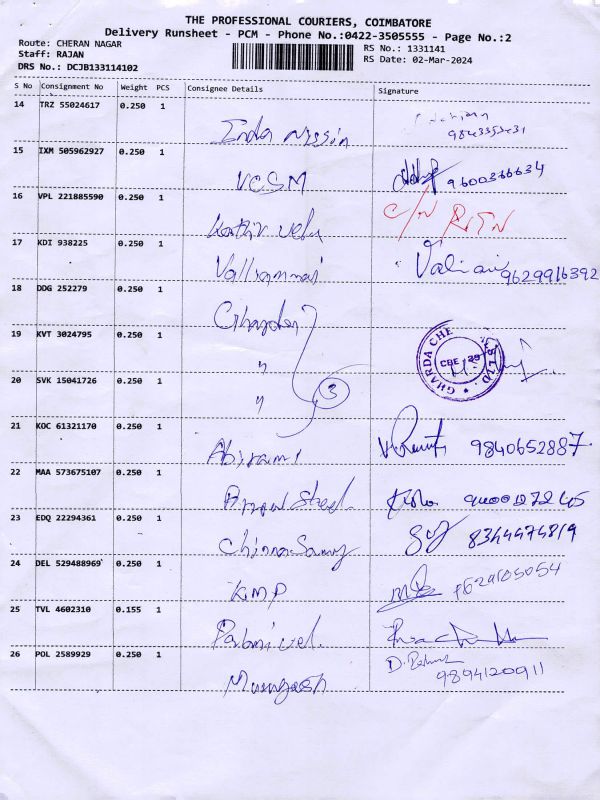 THE PROFESSIONAL COURIERS, COIMBATORE
Delivery Runsheet - PCM - Phone No.:0422-3505555 - Page No.:2
Route: CHERAN NAGAR
RS No.: 1331141
Staff: RAJAN
RS Date: 02-Mar-2024
DRS No.: DCJB133114102
S No Consignment No Weight PCS Consignee Details Signature
14 TRZ 55024617 0.250 1
India Nissin
15 IXM 505962927 0.250 1
VCSM 9600366634
16 VPL 221885590 0.250 1 C/N RTN
Kathir Velu
17 KDI 938225 0.250 1
Valliammai 9629916392
18 DDG 252279 0.250 1
Gharda
19 KVT 3024795 0.250 1
"
GHARDA CHE LTD. CBE 29
20 SVK 15041726 0.250 1
" 3
21 KOC 61321170 0.250 1
Abirami 9840652887
22 MAA 573675107 0.250 1
Steel
23 EDQ 22294361 0.250 1
ChinnaSamy 8344474819
24 DEL 529488969 0.250 1
KMP 9629105054
25 TVL 4602310 0.155 1
Palanivel
26 POL 2589929 0.250 1
Murugesh 9894120911